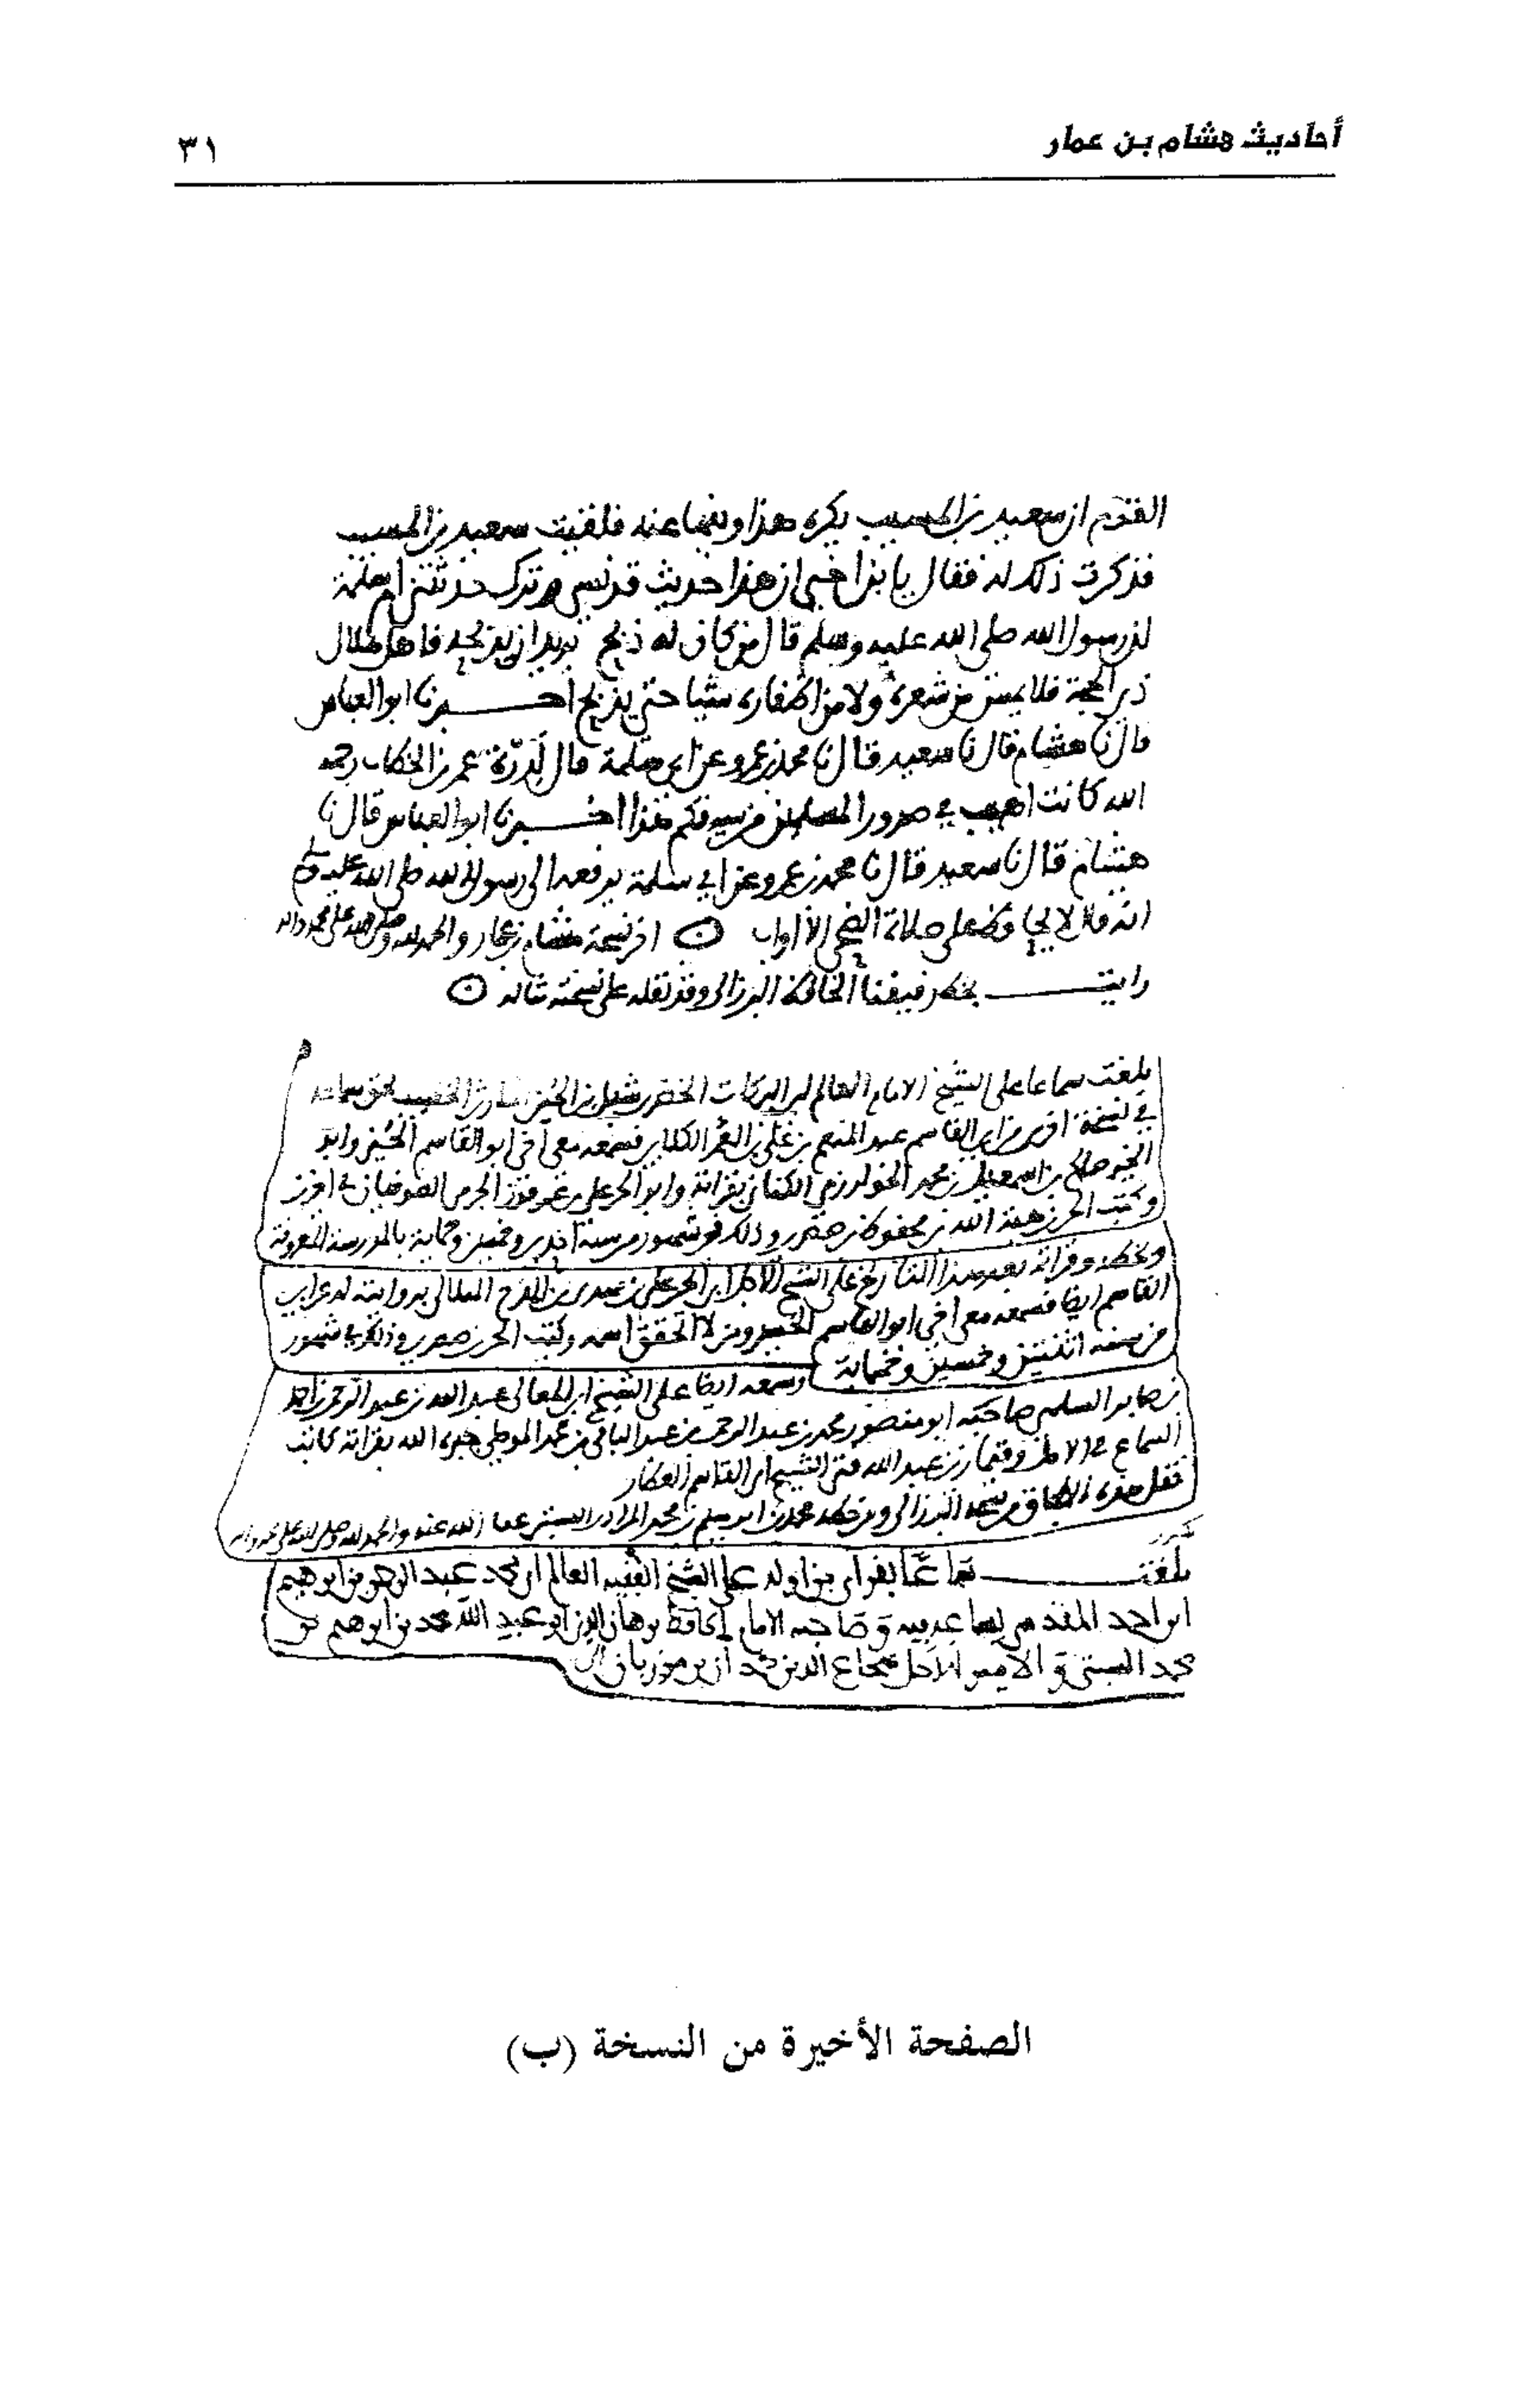 أحاديث هشام بن عمار
٣١
القوم ان سعيد بن المسيب يكره هذا وينها عنه فلقيت سعيد بن المسيب
فذكرت ذلك له فقال يا بن اخي ان هذا حديث قد نسي وترك حدثتني ام سلمة
ان رسول الله صلى الله عليه وسلم قال من كان له ذبح يريد ان يذبحه فاهل هلال
ذي الحجة فلا يمس من شعره ولا من اظفاره شيا حتى يذبح اخبرنا ابو العباس
قال نا هشام قال نا سعيد قال نا محمد بن عمرو عن ابي سلمة قال لدرة عمر بن الخطاب رحمه
الله كانت اهيب في صدور المسلمين من سيوفكم هذا اخبرنا ابو العباس قال نا
هشام قال نا سعيد قال نا محمد بن عمرو عن ابي سلمة يرفعه الى رسول الله صلى الله عليه وسلم
انه قال لا يحافظ على صلاة الضحى الا اواب اخر نسخة هشام بن عمار والحمد لله وصلى الله على محمد واله
رايت بخط رفيقنا الحافظ البرزالي وقد نقله على نسخته
بلغت سماعا على الشيخ الامام العالم ابي البركات الخضر بن شبل بن الحسين
في نسخة اخرى من ابي القاسم عبد المنعم بن علي بن الغمر الكلابي فسمعه معي اخي ابو القاسم الحسين وابو
الخير صالح بن اسمعيل بن محمد الخوارزمي بقراته وابو الحر علي الصوفيان في اخرين
وكتب الحسن بن هبة الله بن محفوظ بن صصرى وذلك في شهور من سنة احدى وخمسين وخمسماية بالمدرسة المعروفة
وبخطه وقراته بعد هذا التاريخ على الشيخ بروايته له عن ابي
القاسم ايضا فسمعه معي اخي ابو القاسم الحسين ومن لا اتحقق اسمه وكتب الحسن بن صصرى وذلك في شهور
من سنة اثنتين وخمسين وخمسماية وسمعه ايضا على الشيخ ابي المعالي عبد الله بن عبد الرحمن بن احمد
بن صابر السلمي صاحبه ابو منصور محمد بن عبد الرحمن بن عبد الباقي بن محمد بقراته كاتب
السماع في الاصل عبد الله فتى الشيخ ابي القاسم العطار
نقل هذه الطباق من نسخة البرزالي ومن خطه محمد بن محمد البستي عفا الله عنه والحمد لله وصلى الله على محمد واله
بلغت سماعا بقراتي من اوله على الشيخ الفقيه العالم ابي محمد عبد الرحمن بن ابرهيم
ابن احمد المقدسي بسماعه فيه وصاحبه الامام الحافظ برهان الدين ابو عبد الله محمد بن ابرهيم بن
محمد البستي والامير الاجل شجاع الدين
الصفحة الأخيرة من النسخة (ب)